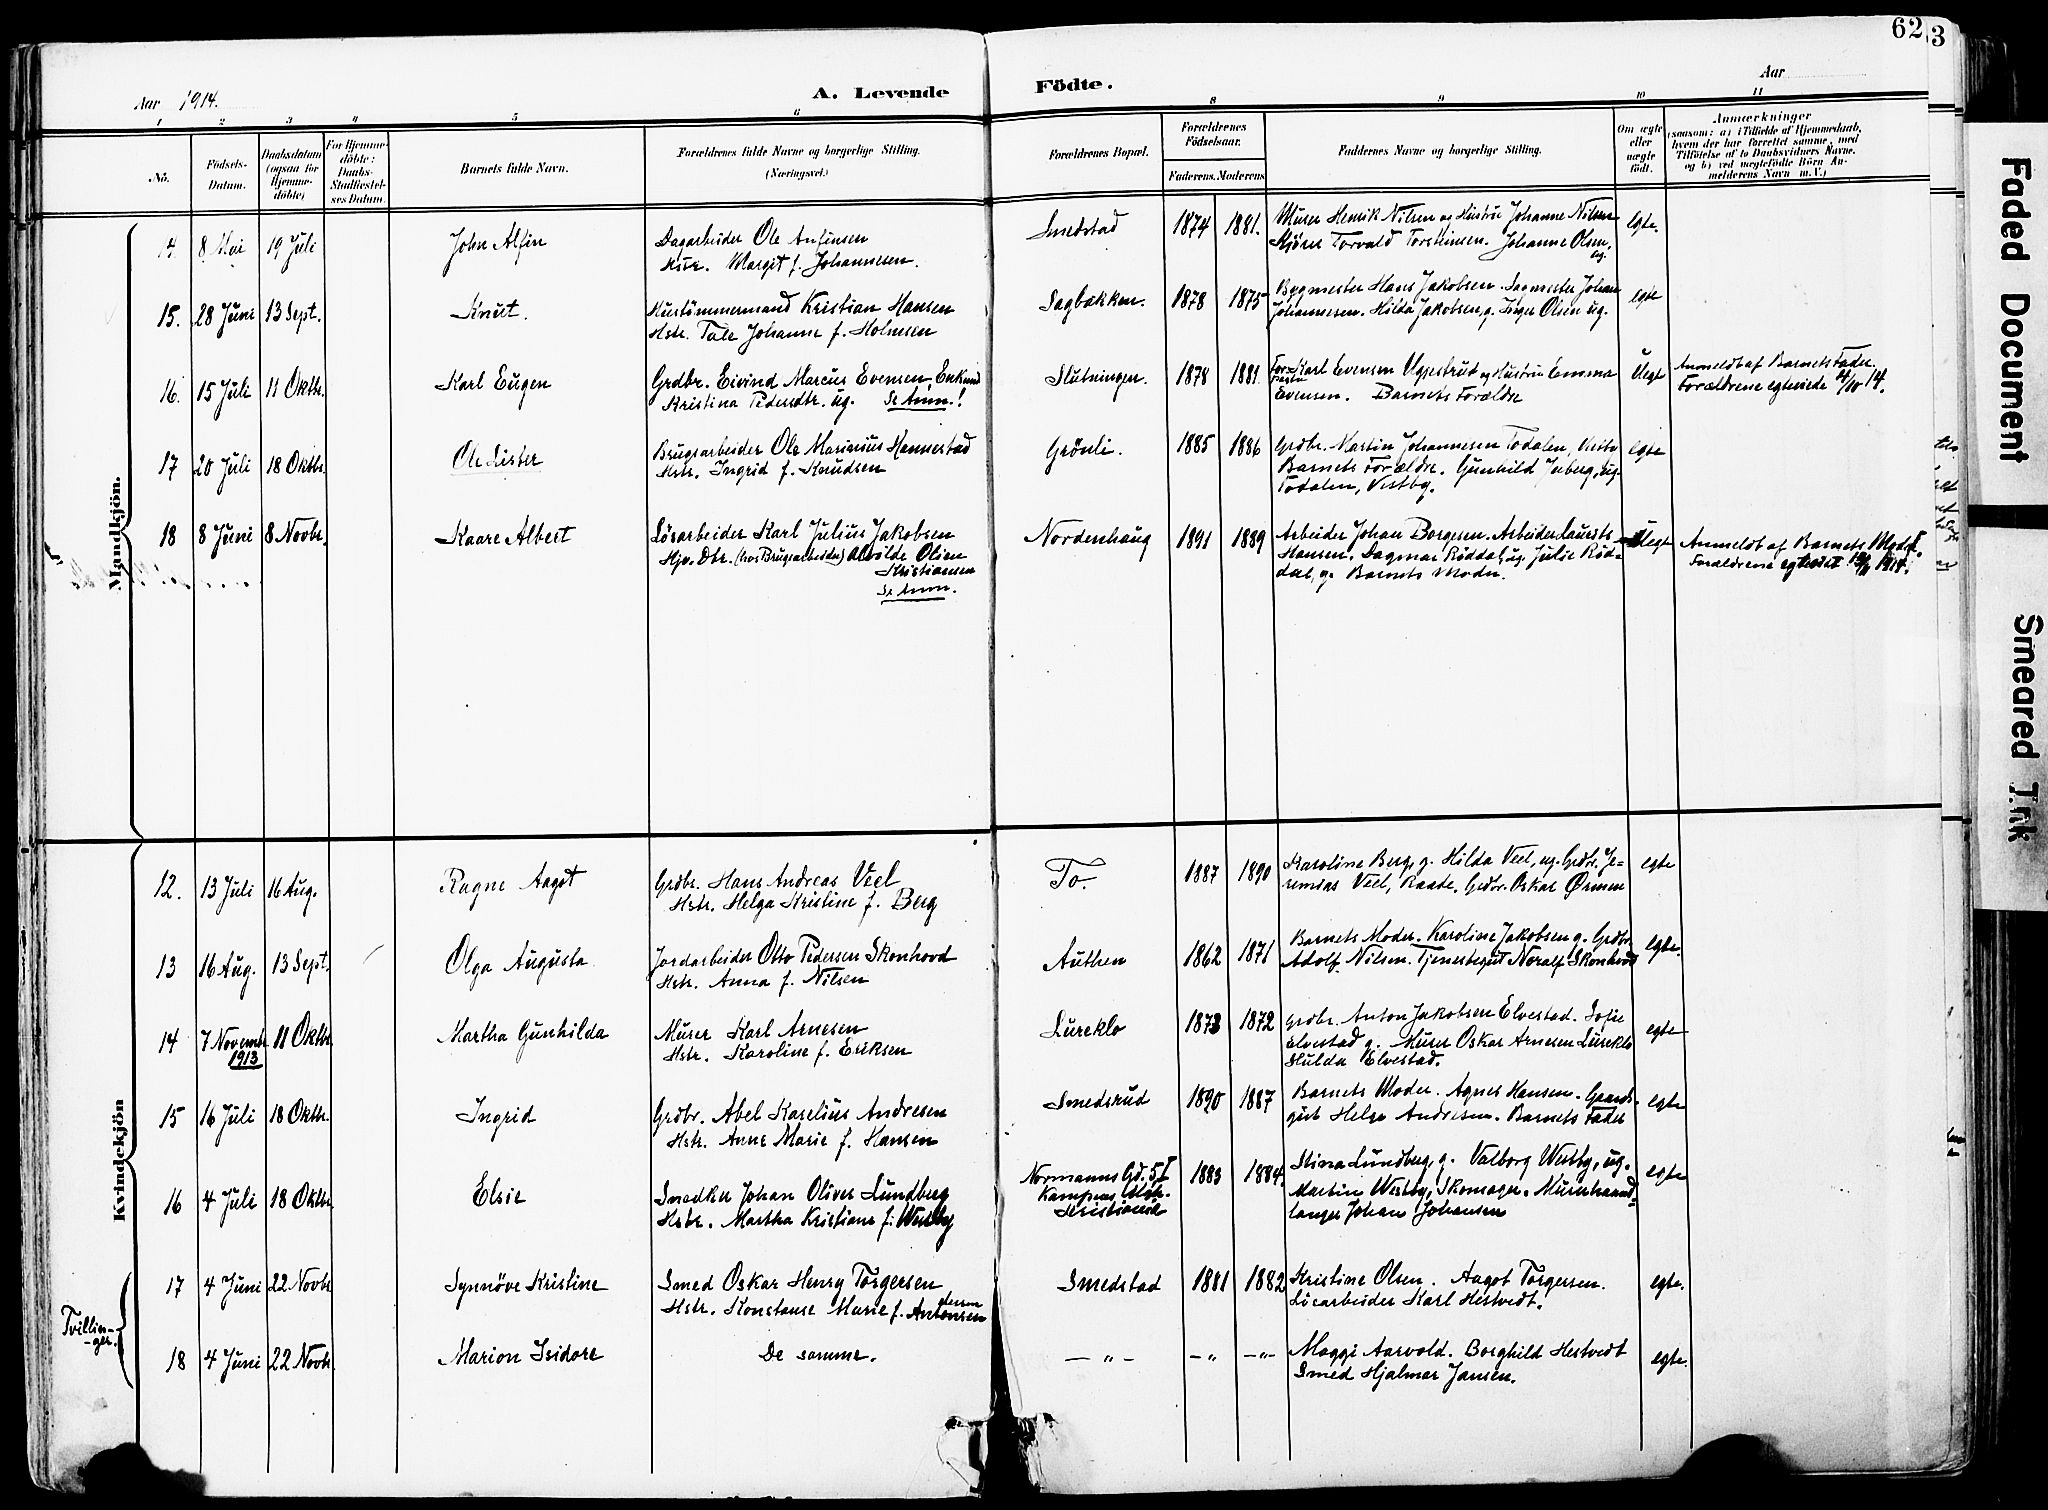 62
3
Aar 1914.
A. Levende Födte.
Aar
1 2 3 4 5 6 8 9 10 11
No.
Födsels-
Datum.
Daabsdatum
(ogsaa for
Hjemme-
döbte)
For Hjemme-
döbte:
Daabs-
Stadfæstel-
ses Datum.
Barnets fulde Navn.
Forældrenes fulde Navne og borgerlige Stilling.
(Næringsvei.)
Forældrenes Bopæl.
Forældrenes
Födselsaar.
Faderens. Moderens
Faddernes Navne og borgerlige Stilling.
Om ægte
eller
uægte
födt.
Anmærkninger
(saasom: a) i Tilfælde af Hjemmedaab,
hvem der har forrettet samme, med
Tilföielse af to Daabsvidners Navne,
og b) ved uægtefödte Börn An-
melderens Navn m. V.)
Mandkjön.
14 8 Mai 19 Juli John Alfin Dagarbeider Ole Anfinsen Smedstad 1874 1881. Murer Henrik Nilsen og Hustru Johanne Nilsen egte.
Hstr. Margit f. Johannesen. Kjörer Torvald Torsteinsen. Johanne Olsen, ug.
15. 28 Juni 13 Sept. Knut. Hustömmermand Kristian Hansen Sagbakken. 1878 1875 Bygmester Hans Jakobsen. Sagmester Johan egte
Hstr. Tale Johanne f. Holmsen Johannesen. Hilda Jakobsen, g. Inger Olsen ug.
16. 15 Juli 11 Oktbr. Karl Eugen Grdbr. Eivind Marcus Evensen, Enkmd Slutningen. 1878 1881. Karl Evensen Ugjestrud og Hustru Emma Uegte Anmeldt af Barnets Fader.
Kristina Pedersdtr. ug. Se Anm.! Evensen. Barnets Forældre Forældrene egteviede 4/10 14.
17 20 Juli 18 Oktbr. Ole Sister Brugsarbeider Ole Marinius Hannestad Grönli. 1885 1886 Grdbr. Martin Johannesen Todalen, Vestby egte
Hstr. Ingrid f. Knudsen Barnets Forældre. Gunhild Isberg, ug.
Todalen, Vestby.
18 8 Juni 8 Novbr. Kaare Albert Lösarbeider Karl Julius Jakobsen Nordenhaug 1891 1889 Arbeider Johan Borgersen. Arbeider Laurits Uegte Anmeldt af Barnets Moder.
Hjv. Dtr. (hos Brugsarbeider) Alvilde Olsen Hansen. Dagmar Röddal, ug. Julie Röd- Forældrene egteviet 1914.
Kristiansen dal, g. Barnets Moder.
Se Anm.
Kvindekjön
12. 13 Juli 16 Aug. Ragne Aagot Grdbr. Hans Andreas Veel To. 1887 1890 Karoline Berg, g. Hilda Veel, ug. Grdbr. Je- egte
Hstr. Helga Kristine f. Berg remias Veel, Raade. Grdbr. Oskar Ørmen
13 16 Aug. 13 Sept. Olga Augusta Jordarbeider Otto Pedersen Skonhovd Authen 1862 1871 Barnets Moder. Karoline Jakobsen g. Grdbr. egte.
Hstr. Anna f. Nilsen Adolf Nilsen. Tjenestegut Noralf Skonhovd
14 7 Novembr. 11 Oktbr. Martha Gunhilda Murer Karl Arnesen Lureklo 1873 1872 Grdbr. Anton Jakobsen Elvestad. Sofie egte
1913 Hstr. Karoline f. Eriksen Elvestad g. Murer Oskar Arnesen Lureklo
Hulda Elvestad.
15 16 Juli 18 Oktbr. Ingrid Grdbr. Abel Karelius Andresen Smedsrud 1890 1887 Barnets Moder. Agnes Hansen. Gaards- egte
Hstr. Anne Marie f. Hansen gut Helge Andresen. Barnets Fader
16 4 Juli 18 Oktbr. Elsie Snedker Johan Oliver Lundberg Normanns Gd. 5 I 1883 1884. Stina Lundberg, g. Valborg Westby, ug. egte
Hstr. Martha Kristiane f. Westby Kampens Msh. Martin Westby, Skomager. Murerhaand-
Kristiania langer Johan Johansen
Tvillin-
-ger.
17 4 Juni 22 Novbr. Synnöve Kristine Smed Oskar Henry Torgersen Smedstad 1881 1882 Kristine Olsen. Aagot Torgersen. egte.
Hstr. Konstanse Marie f. Antonsen Lösarbeider Karl Hestvedt.
18 4 Juni 22 Novbr. Marion Isidore De samme. — " — — " — " — Maggi Aarvold. Borghild Hestvedt egte.
Smed Hjalmar Jansen.
Faded Document
Smeared Ink